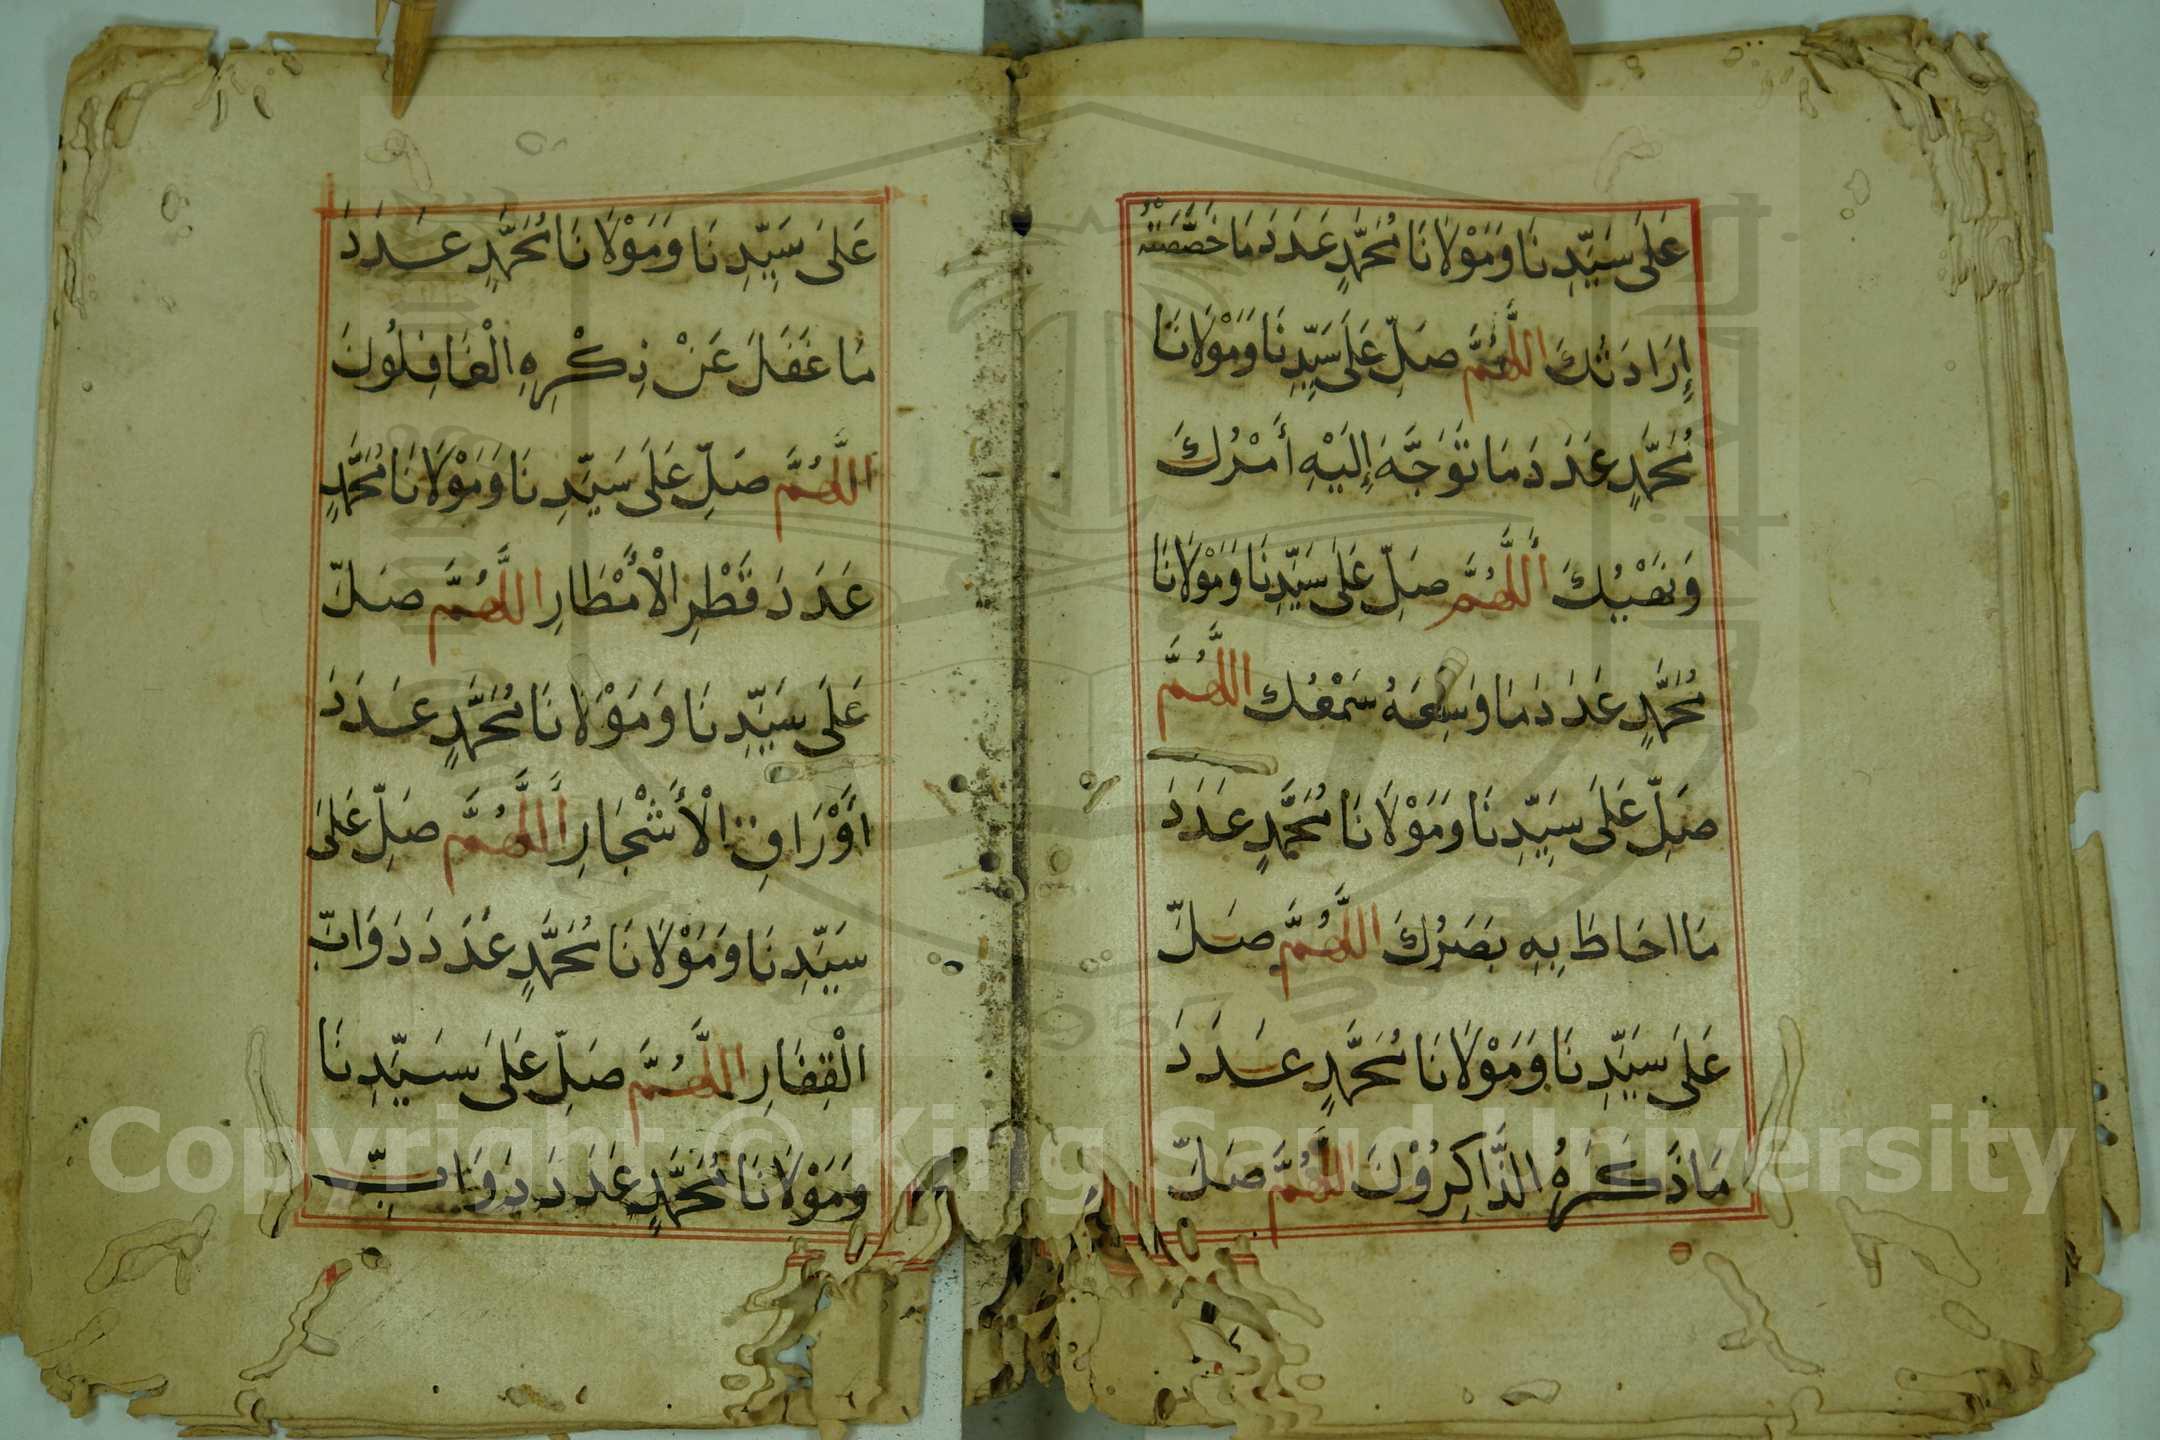 عَلَى سَيِّدِنَا وَمَوْلَانَا مُحَمَّدٍ عَدَدَ مَا خَصَّصَتْهُ
إِرَادَتُكَ اللَّهُمَّ صَلِّ عَلَى سَيِّدِنَا وَمَوْلَانَا
مُحَمَّدٍ عَدَدَ مَا تَوَجَّهَ إِلَيْهِ أَمْرُكَ
وَنَهْيُكَ أَللَّهُمَّ صَلِّ عَلَى سَيِّدِنَا وَمَوْلَانَا
مُحَمَّدٍ عَدَدَ مَا وَسِعَهُ سَمْعُكَ اللَّهُمَّ
صَلِّ عَلَى سَيِّدِنَا وَمَوْلَانَا مُحَمَّدٍ عَدَدَ
مَا احَاطَ بِهِ بَصَرُكَ اللَّهُمَّ صَلِّ
عَلَى سَيِّدِنَا وَمَوْلَانَا مُحَمَّدٍ عَدَدَ
مَا ذَكَرَهُ الذَّاكِرُوْنَ اللَّهُمَّ صَلِّ
عَلَى سَيِّدِنَا وَمَوْلَانَا مُحَمَّدٍ عَدَدَ
مَا غَفَلَ عَنْ ذِكْرِهِ الْغَافِلُونَ
اللَّهُمَّ صَلِّ عَلَى سَيِّدِنَا وَمَوْلَانَا مُحَمَّدٍ
عَدَدَ قَطْرِ الْأَمْطَارِ اللَّهُمَّ صَلِّ
عَلَى سَيِّدِنَا وَمَوْلَانَا مُحَمَّدٍ عَدَدَ
اَوْرَاقِ الْأَشْجَارِ أَللَّهُمَّ صَلِّ عَلَى
سَيِّدِنَا وَمَوْلَانَا مُحَمَّدٍ عَدَدَ دَوَابِّ
الْقِفَارِ اللَّهُمَّ صَلِّ عَلَى سَيِّدِنَا
وَمَوْلَانَا مُحَمَّدٍ عَدَدَ دَوَابِّ
Copyright © King Saud University